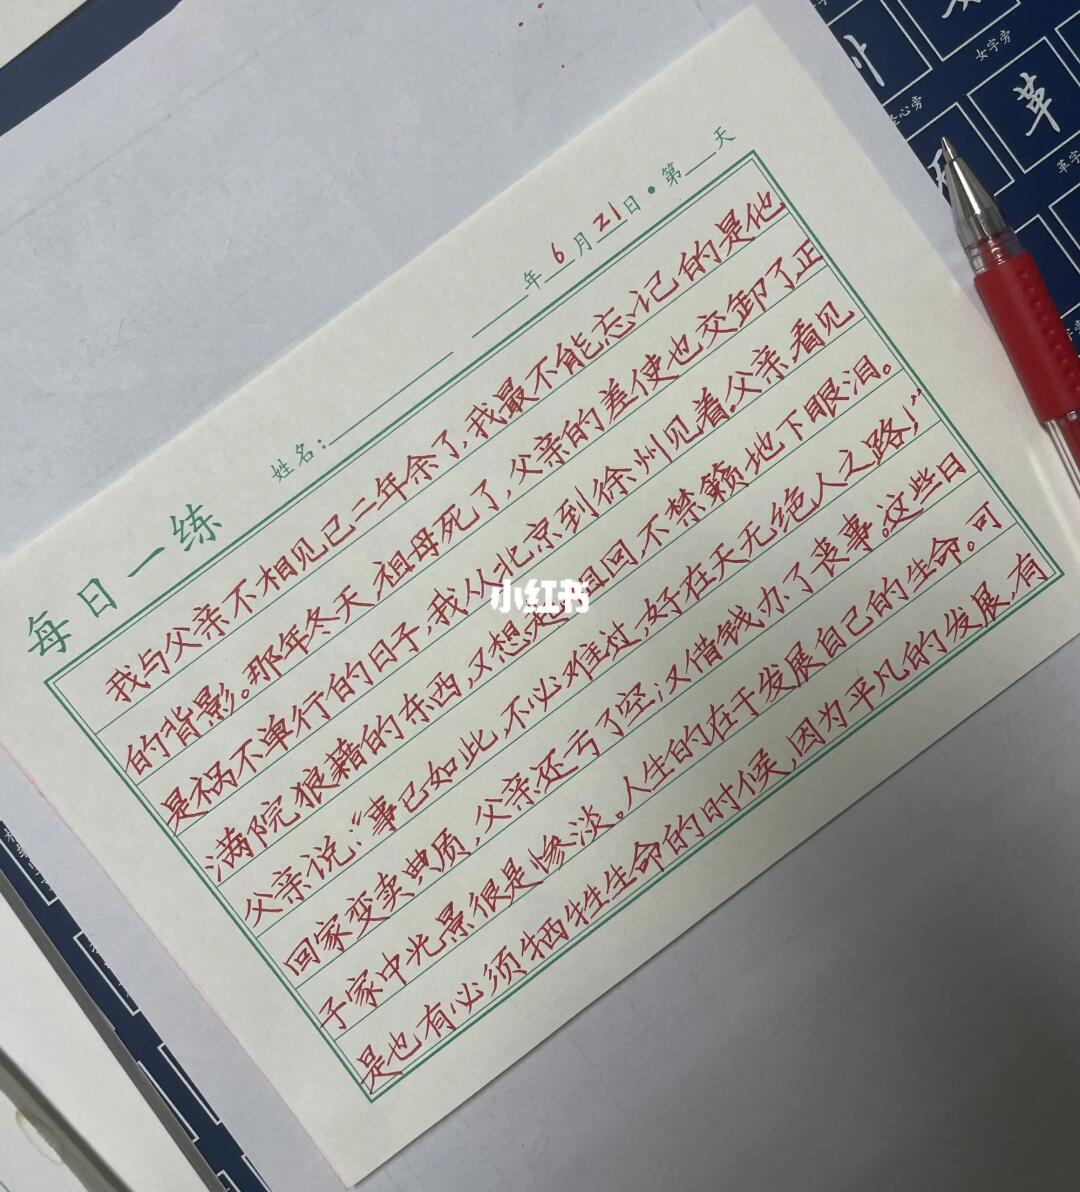 每日一练
姓名:
年6月21日·第 天
我与父亲不相见已二年余了,我最不能忘记的是他
的背影。那年冬天,祖母死了,父亲的差使也交卸了,正
是祸不单行的日子,我从北京到徐州见着父亲,看见
满院狼藉的东西,又想起祖回,不禁籁地下眼泪。
父亲说:“事已如此,不必难过,好在天无绝人之路!”
回家变卖典质,父亲还亏了空;汉借钱办了丧事。这些日
子家中光景很是惨淡。人生的在于发展自己的生命。可
是也有必须牺牲生命的时候,因为平凡的发展,有
小红书
女字旁
革
革字旁